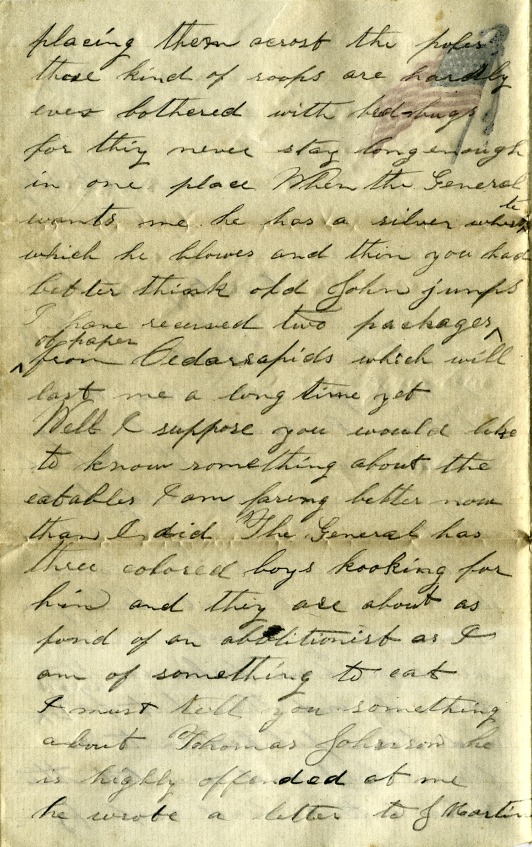 placing them acrost the poles
those kind of roops are hardly
ever bothered with bed-bugs
for thiy never stay long enough
in one place When the General
wants me he has a silver whistle
which he blowes and thin you had
better think old John jumps
I have received two packages
of paper
from Cedarrapids which will
last me a long time yet
Well I suppose you would like
to know something about the
eatables I am faring better now
than I did The General has
three colored boys kooking for
him and they are about as
fond of an abolitionist as I
am of something to eat
I must tell you something
about Thomas Johnson he
is highly offended at me
he wrote a letter to J Martin